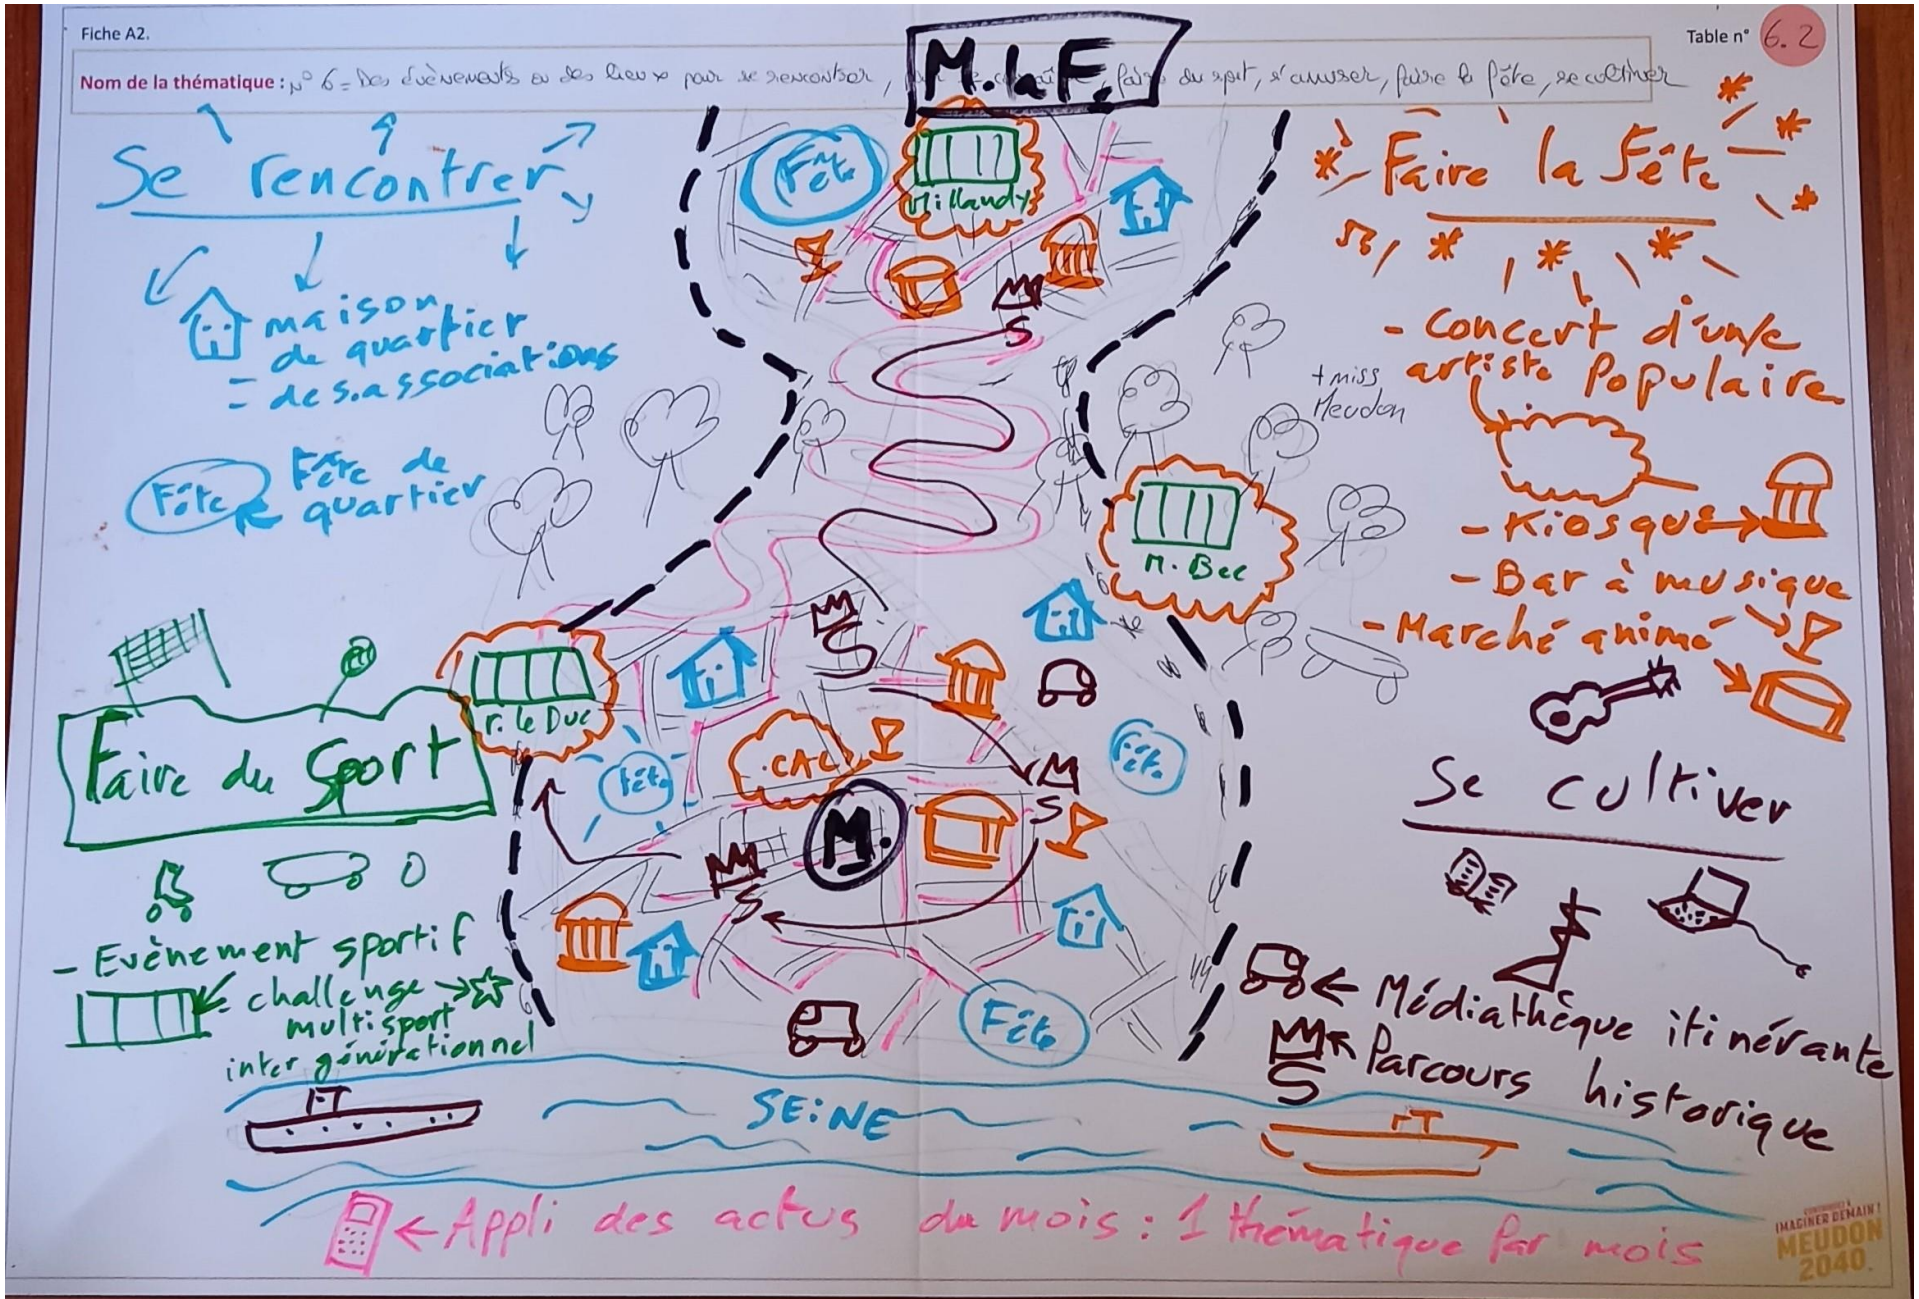 Fiche A2.
Table n° 6.2
Nom de la thématique : N° 6 = Des évènements ou des lieux pour se rencontrer, faire du sport, s'amuser, faire la fête, se cultiver
M. la F.
Se rencontrer
maison
de quartier
= des associations
Fête
Fête de
quartier
Faire du Sport
- Evènement sportif
challenge
multisport
inter générationnel
Fête
Millandy
S
r. le Duc
M. Bec
S
Fête
CAC
Fête
M.
S
S
Fête
Faire la Fête
- Concert d'un/e
artiste Populaire
+ miss
Meudon
- Kiosque
- Bar à musique
- Marché animé
Se cultiver
Médiathèque itinérante
S
Parcours historique
SEiNE
Appli des actus du mois : 1 thématique Par mois
IMAGINER DEMAIN !
MEUDON
2040.